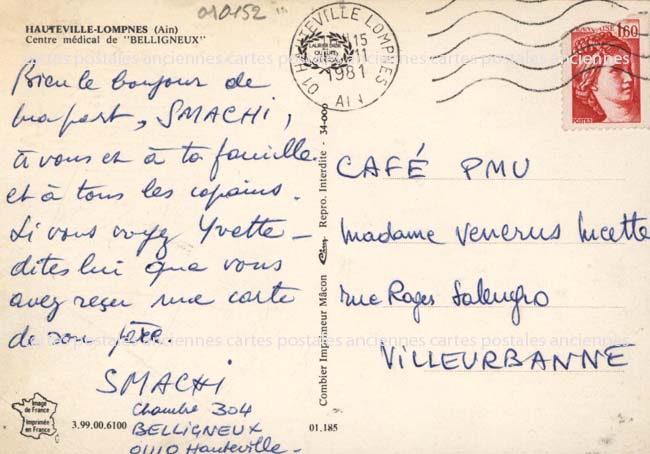 010152
HAUTEVILLE-LOMPNES (Ain)
Centre médical de "BELLIGNEUX"
Bien le bonjour de
ma part, SMACHI,
à vous et à ta famille
et à tous les copains.
Si vous voyez Yvette -
dites lui que vous
avez reçu une carte
de son
SMACHI
Chambre 304
BELLIGNEUX
01110 Hauteville -
Image de France
Imprimée en France
3.99.00.6100
Combier Imprimeur Mâcon Repro. Interdite - 34-000
01.185
01 HAUTEVILLE LOMPNES
15
1981
AIN
FRANÇAISE
1,60
POSTES
CAFÉ PMU
Madame Venerus Lucette
rue Roger Salengro
VILLEURBANNE
cartes postales anciennes cartes postales anciennes cartes postales anciennes
cartes postales anciennes cartes postales anciennes cartes postales anciennes